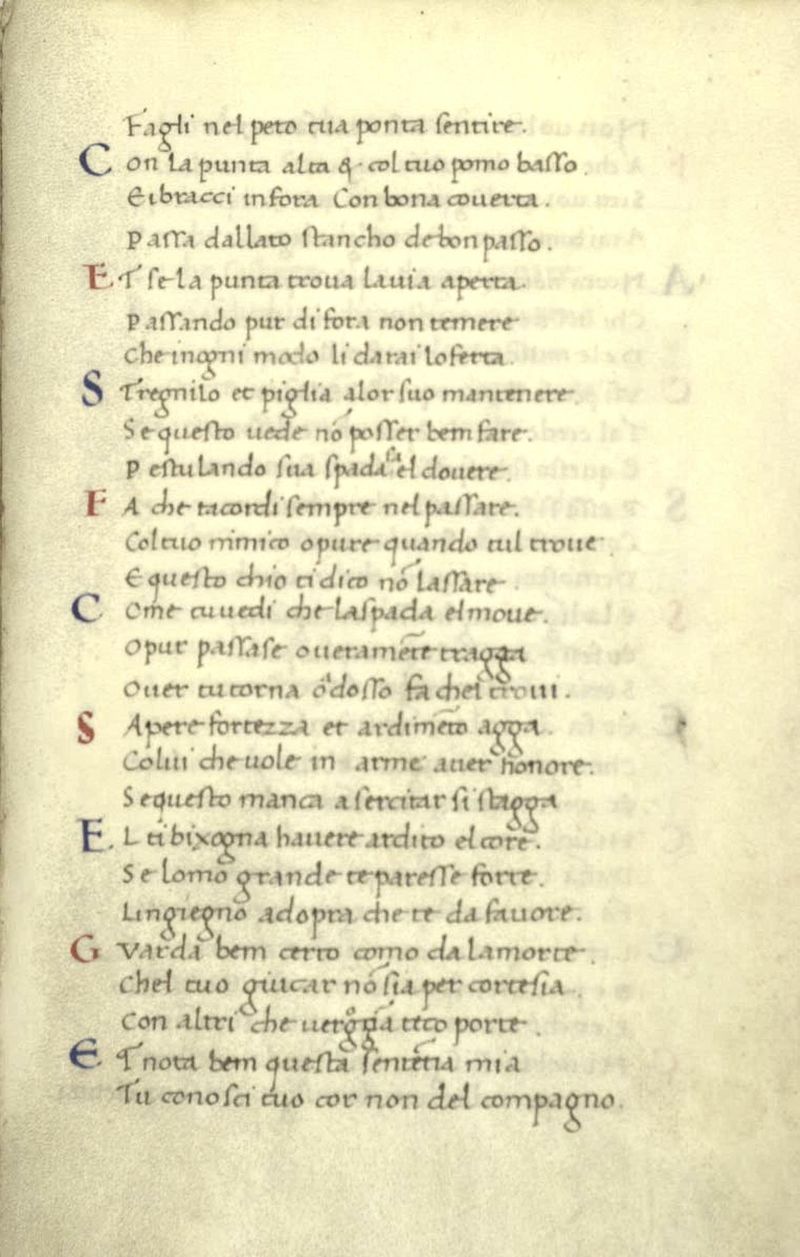 Fagli nel peto tua ponta sentire.
Con la punta alta & . col tuo pomo basso.
E i bracci in fora Con bona couerta.
Passa dallato stancho de bon passo.
ET se la punta troua la uia aperta.
Passando pur di fora non temere
Che in ogni modo li darai lo ferta.
STregnilo et piglia alor suo mantenere
Se questo uede nō posser bem fare.
Pestulando sua spada el douere.
FA che racordi sempre nel passare.
Col tuo nimico opure quando tul troue.
E questo chio ti dico nō lassare.
COme tu uedi che la spada el moue.
Opur passase oueramēte tragga
Ouer tu torna ōdosso fa chel troui.
SApere fortezza et ardimēto agga.
Colui che uole in arme auer honore.
Se questo manca a sercitar si stagga
EL ti bixogna hauere ardito el core.
Se lomo grande te paresse forte.
Lingiegno adopra che te da fauore.
GVarda bem certo como da la morte.
Chel tuo giucar nō sia per cortesia.
Con altri che uergōgia teco porte.
ET nota bem questa sentētia mia
Tu conosci tuo cor non del compagno.